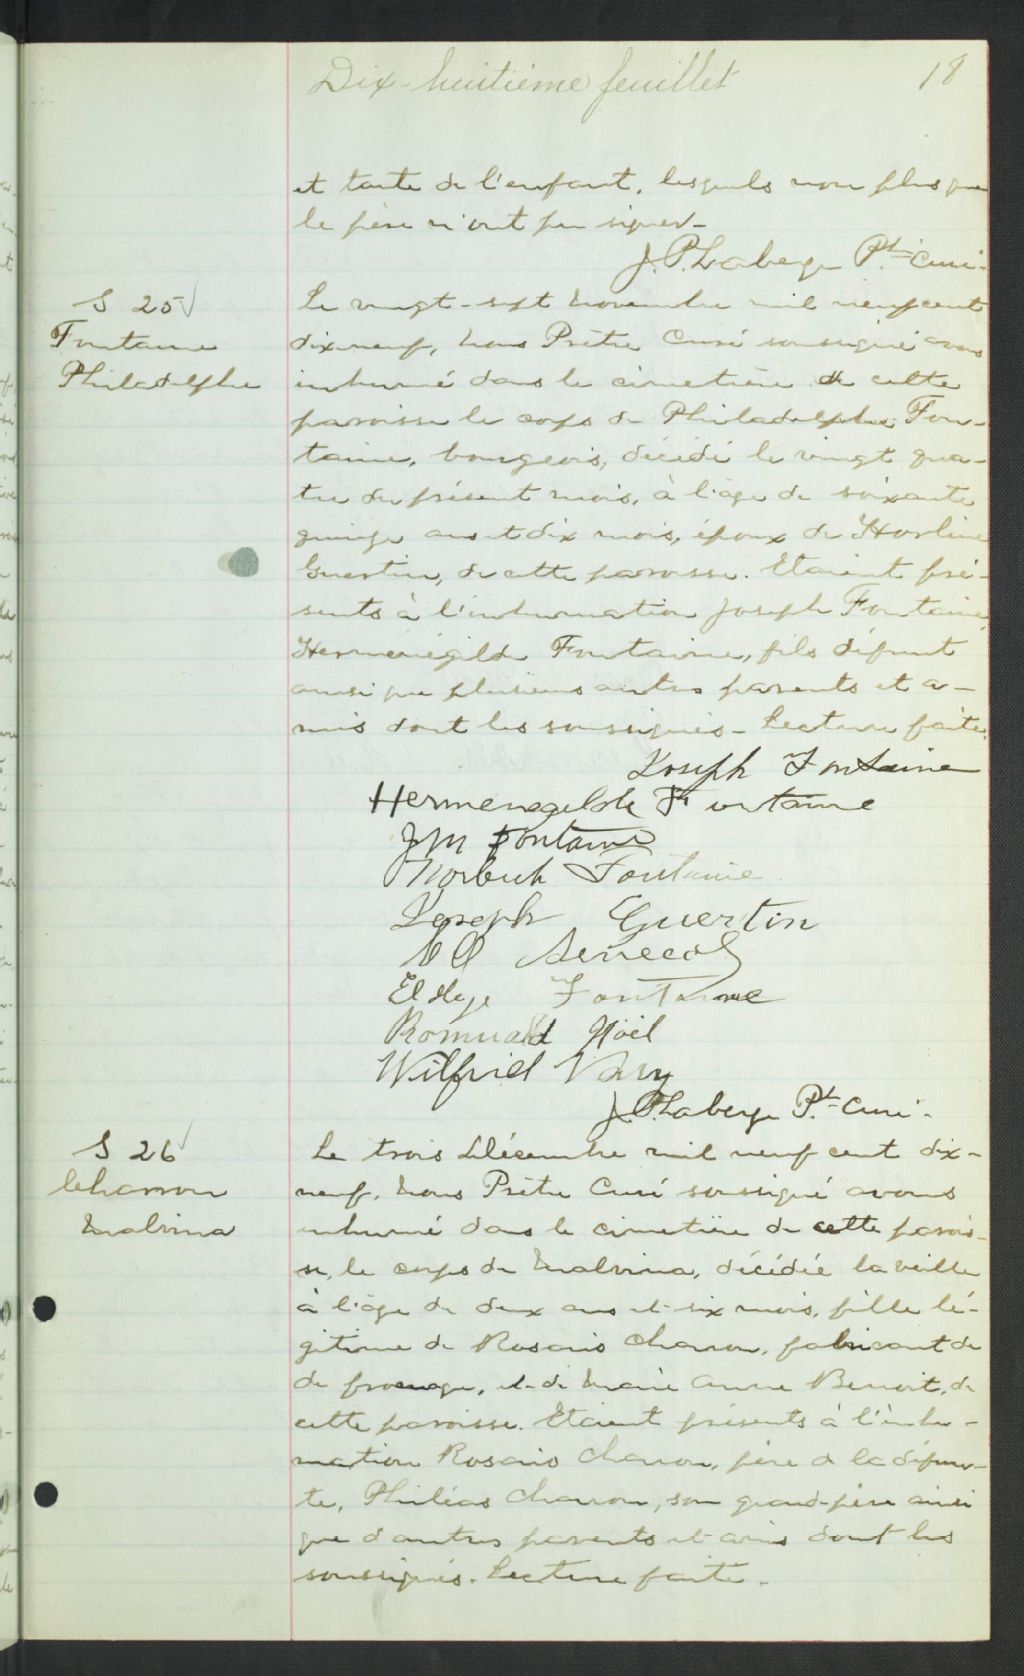 Dix-huitième feuillet 18
et tante de l'enfant, lesquels non plus que
le père n'ont pu signer-
J. P. Laberge Ptre curé.
S 25
Fontaine
Philadelphe
Le vingt-sept novembre mil neuf cent
dix neuf, nous Prêtre Curé soussigné avons
inhumé dans le cimetière de cette
paroisse le corps de Philadelphe Fon-
taine, bourgeois, décédé le vingt qua-
tre du présent mois, à l'âge de soixante
quinze ans et dix mois, époux de
Guertin, de cette paroisse. Etaient pré-
sents à l'inhumation Joseph Fontaine,
Herménégilde Fontaine, fils défunt
ainsi que plusieurs autres parents et a-
mis dont les soussignés - Lecture faite.
Joseph Fontaine
Hermenegilde Fontaine
J M Fontaine
Norbert Fontaine
Joseph Guertin
Senecal
Fontaine
Romuald Noël
Wilfrid
J. P. Laberge Ptre curé.
S 26
Charron
Malvina
Le trois Décembre mil neuf cent dix-
neuf, nous Prêtre Curé soussigné avons
inhumé dans le cimetière de cette parois-
se, le corps de Malvina, décédée la veille
à l'âge de deux ans et six mois, fille lé-
gitime de Rosario Charron, fabricant de
de fromage, et de Marie Anne Benoit, de
cette paroisse. Etaient présents à l'inhu-
mation Rosario Charron, père de la défun-
te, Philéas Charron, son grand-père ainsi
que d'autres parents et amis dont les
soussignés. Lecture faite.